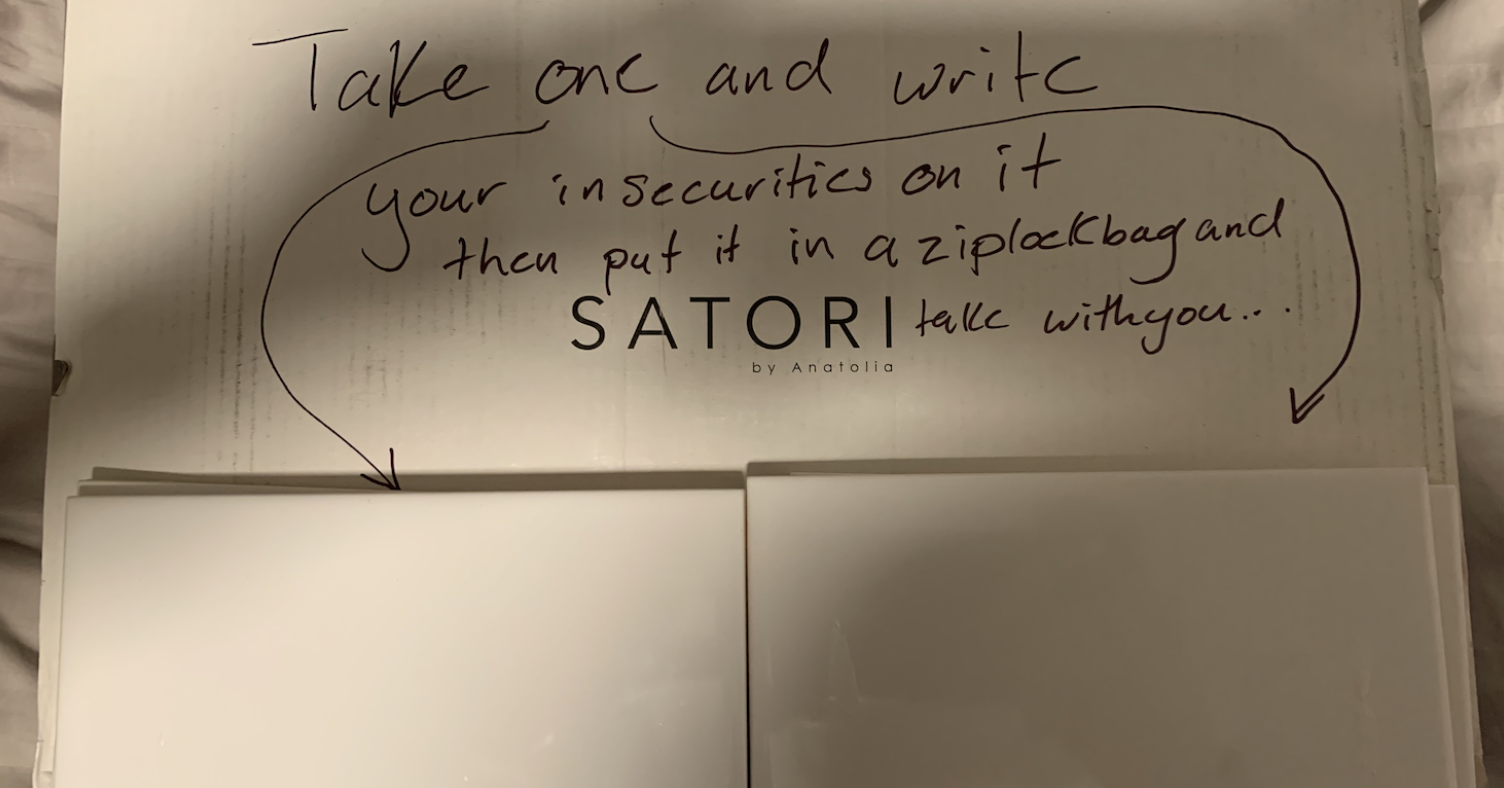 Take one and write
your insecurities on it
then put it in a ziplock bag and
SATORI take with you...
by Anatolia